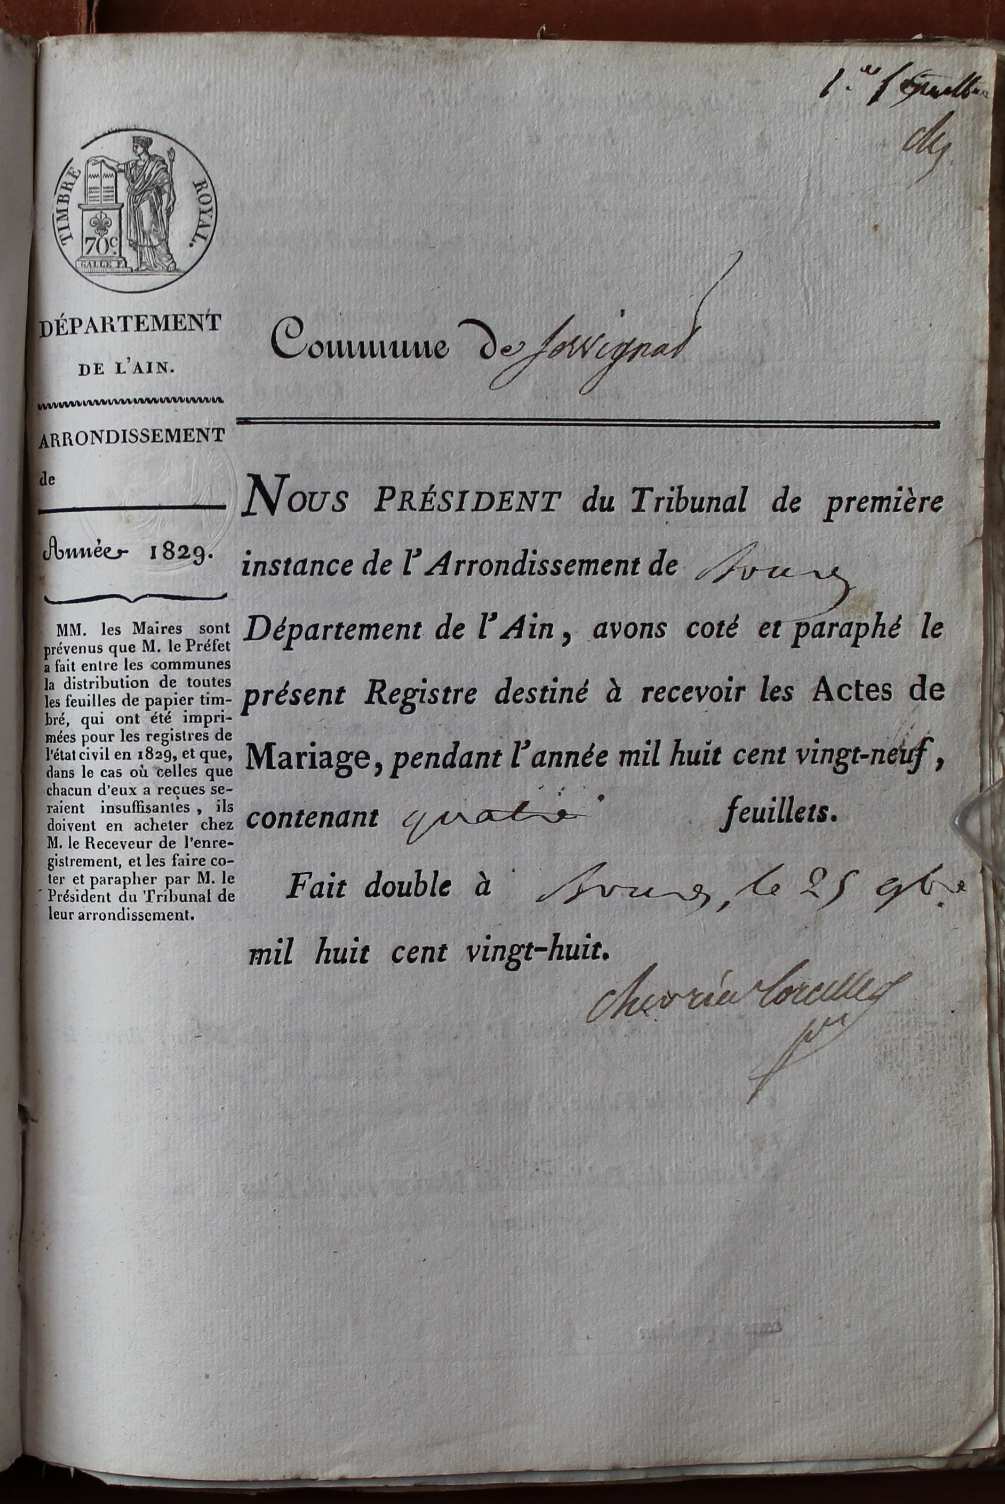 1.er feuillet
TIMBRE ROYAL.
70c
DÉPARTEMENT
DE L'AIN.
Commune de Jasseignat
ARRONDISSEMENT
de
Année 1829.
MM. les Maires sont
prévenus que M. le Préfet
a fait entre les communes
la distribution de toutes
les feuilles de papier tim-
bré, qui ont été impri-
mées pour les registres de
l'état civil en 1829, et que,
dans le cas où celles que
chacun d'eux a reçues se-
raient insuffisantes, ils
doivent en acheter chez
M. le Receveur de l'enre-
gistrement, et les faire co-
ter et parapher par M. le
Président du Tribunal de
leur arrondissement.
NOUS PRÉSIDENT du Tribunal de première
instance de l'Arrondissement de Bourg
Département de l'Ain, avons coté et paraphé le
présent Registre destiné à recevoir les Actes de
Mariage, pendant l'année mil huit cent vingt-neuf,
contenant quatre feuillets.
Fait double à Bourg, le 25 9bre
mil huit cent vingt-huit.